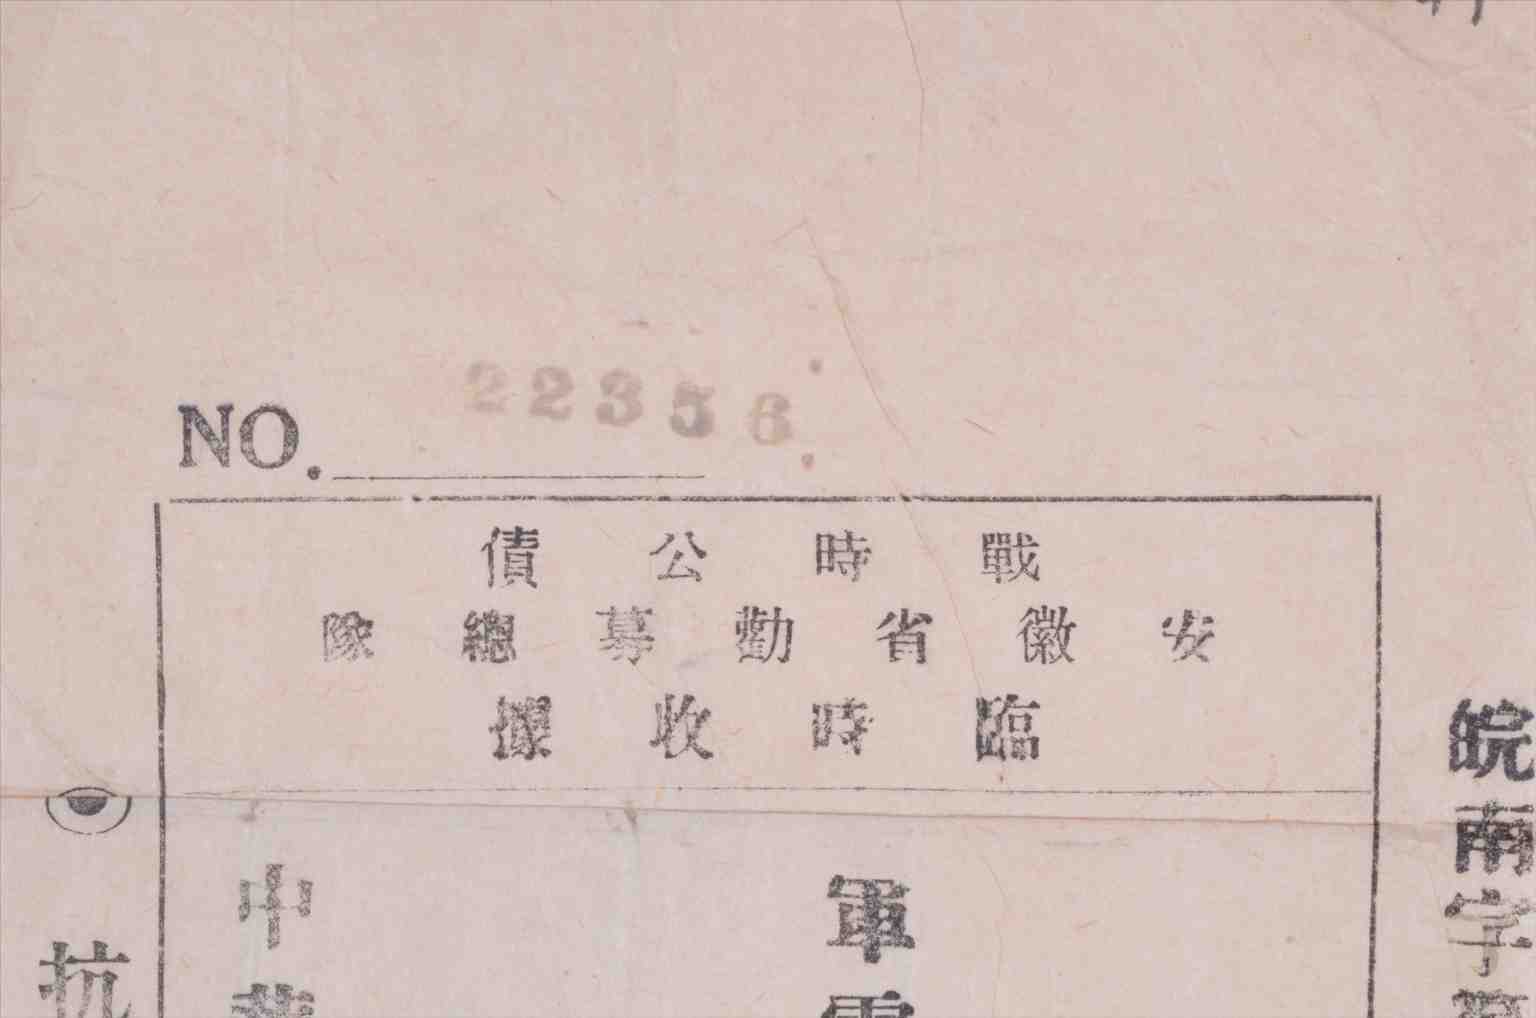 NO. 22356
戰時公債
安徽省勸募總隊
臨時收據
皖南字
軍
中
抗